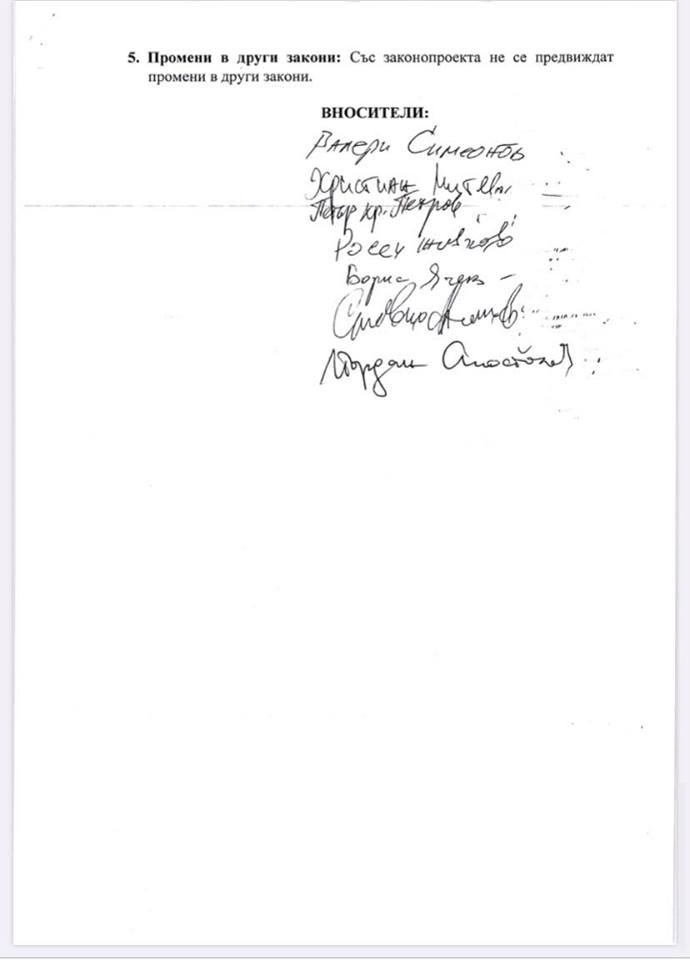 5. Промени в други закони: Със законопроекта не се предвиждат
промени в други закони.
ВНОСИТЕЛИ:
Валери Симеонов
Христиан Митев
Петър Хр. Петров
Росен Живков
Борис Ячев
Йордан Апостолов